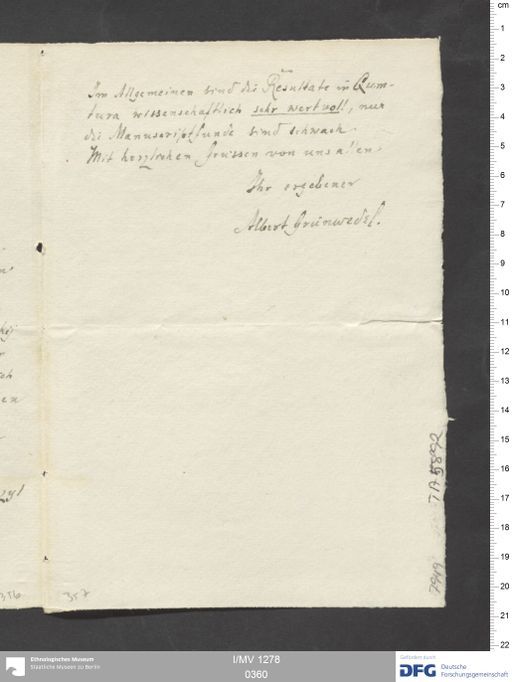 Im Allgemeinen sind die Resultate in Qum-
tura wissenschaftlich sehr wertvoll, nur
die Manuscriptfunde sind schwach.
Mit herzlichen Grüssen von uns allen
Ihr ergebener
Albert Grünwedel.
en
291
356
357
TA 5892
7919
cm
1
2
3
4
5
6
7
8
9
10
11
12
13
14
15
16
17
18
19
20
21
22
Ethnologisches Museum
Staatliche Museen zu Berlin
I/MV 1278
0360
Gefördert durch
DFG Deutsche
Forschungsgemeinschaft